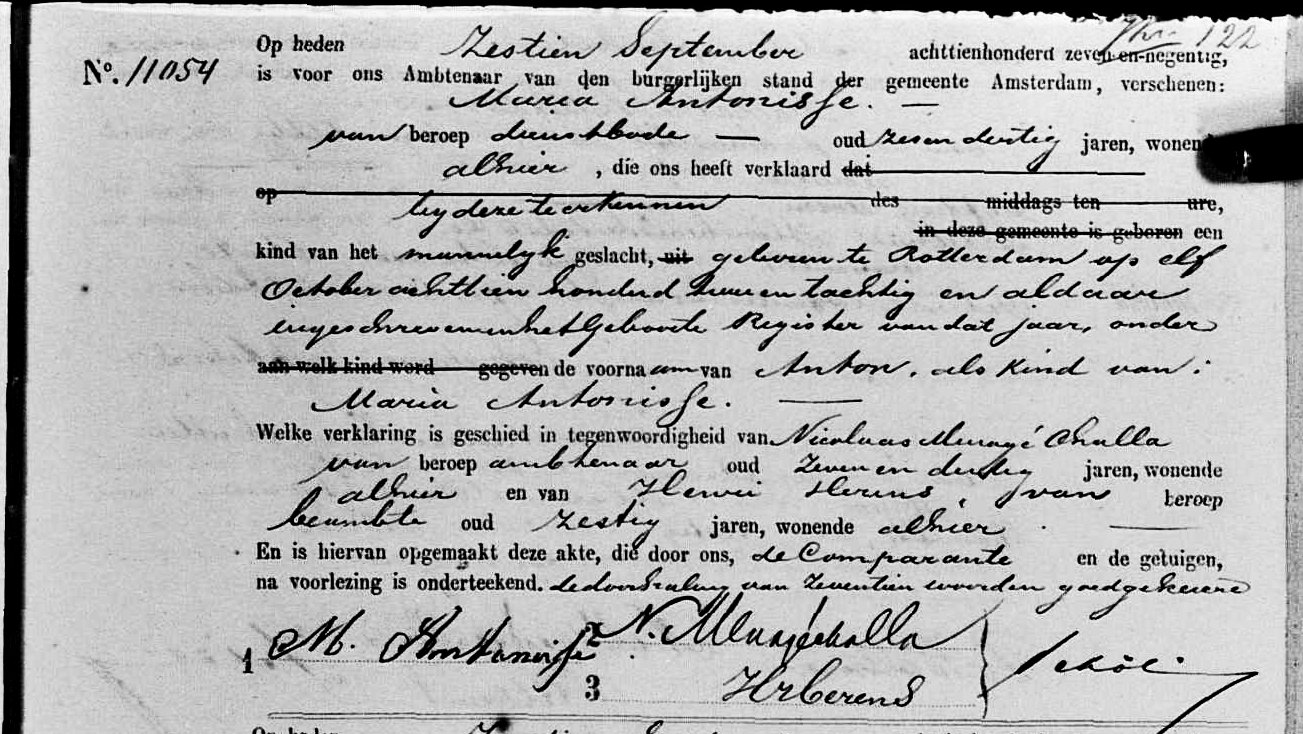 122
Op heden Zestien September achttienhonderd zeven-en-negentig,
No. 11054 is voor ons Ambtenaar van den burgerlijken stand der gemeente Amsterdam, verschenen:
Maria Antonisse. —
van beroep dienstbode — oud zesendertig jaren, wonende
alhier, die ons heeft verklaard dat
op by deze te erkennen des middags ten ure,
in deze gemeente is geboren een
kind van het mannelyk geslacht, uit geboren te Rotterdam op elf
October achttien honderd tachtig en aldaar
ingeschreven in het Geboorte Register van dat jaar, onder
aan welk kind word gegeven de voornaam van Anton, als kind van:
Maria Antonisse. —
Welke verklaring is geschied in tegenwoordigheid van Nicolaas
van beroep ambtenaar oud Zeven en dertig jaren, wonende
alhier en van Henri, van beroep
beambte oud zestig jaren, wonende alhier. —
En is hiervan opgemaakt deze akte, die door ons, de Comparante en de getuigen,
na voorlezing is onderteekend. de doorhaling van Zeventien woorden goedgekeurd
1 M. Antonisse 2 N.
3
Op heden Zestien